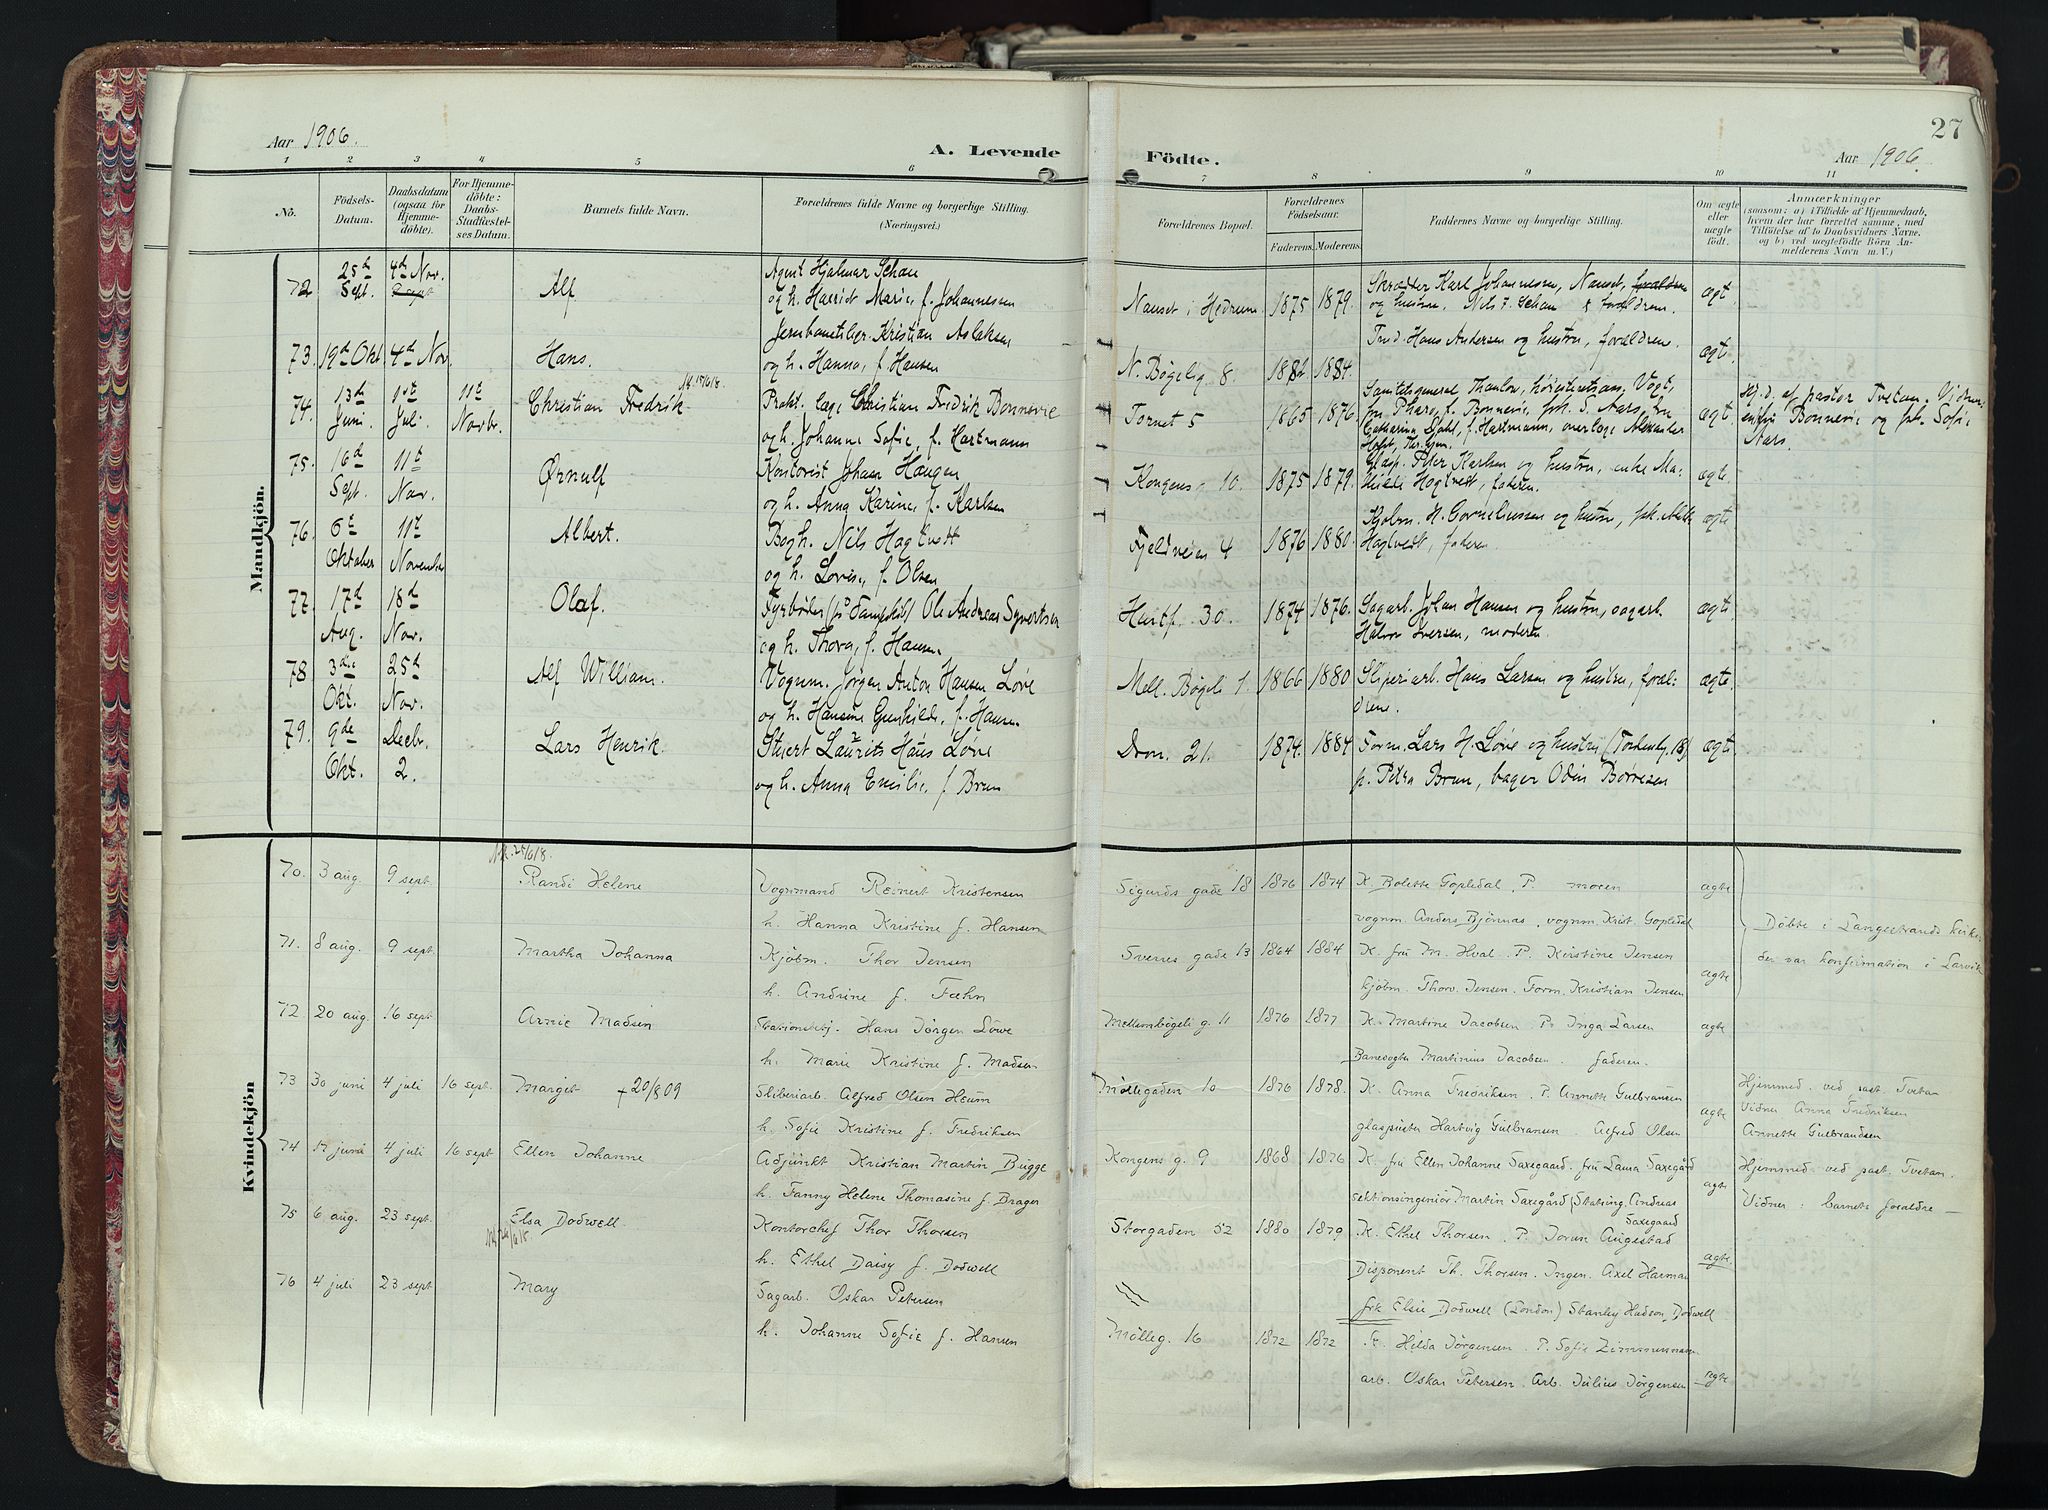 27
Aar 1906.
A. Levende Födte.
Aar 1906.
1 2 3 4 5 6 7 8 9 10 11
No.
Födsels-Datum.
Daabsdatum (ogsaa for Hjemme-döbte).
For Hjemme-döbte: Daabs-Stadfæstel-ses Datum.
Barnets fulde Navn.
Forældrenes fulde Navne og borgerlige Stilling.
(Næringsvei.)
Forældrenes Bopæl.
Forældrenes Födselsaar.
Faderens. Moderens.
Faddernes Navne og borgerlige Stilling.
Om ægte eller uægte födt.
Anmærkninger
(saasom: a) i Tilfælde af Hjemmedaab,
hvem der har forrettet samme, med
Tilföielse af to Daabsvidners Navne.
og b) ved uægtefödte Börn An-
melderens Navn m. V.)
Mandkjön.
72 25de Sept. 4de Nov. Alf
Agent Hjalmar Schau
og h. Harriet Marie, f. Johannesen
Nanset i Hedrum 1875 1879.
Skrædder Karl Johannesen, Nanset, forældren
og hustru. Nils F. Schau & forældren.
ægt.
73. 19de Okt. 4de Nov. Hans.
Jernbanetilsyn Kristian Aslaksen
og h. Hanna, f. Hansen
N. Bøgelig. 8. 1882 1884.
Hans Andersen og hustru, forældrene.
ægt.
74. 13de Juni 1ste Juli. 11te Novbr. Christian Fredrik
Prakt. læge Christian Fredrik Bonnevie
og h. Johanne Sofie, f. Hartmann
Torvet 5 1865 1876.
Sanitetsgeneral Thaulow, høiesteretsass. Vogt,
S. Aars, fru
Catharina Dahl, f. Hartmann, overlæge Alexander
Holst
ægt
Hj.d. af pastor Tvetan. Vidner
enkefru Bonnevie og frk. Sofie
Aars.
75. 16de Sept. 11te Nov. Ørnulf
Kontorist Johan Haugen
og h. Anna Karine, f. Karlsen
Kongens g. 10. 1875 1879.
Glasp. Peter Karlsen og hustru, enke Ma-
thilde Hogtvedt, faderen.
ægte
76. 6te Oktober 11te November Albert.
Bogh. Nils Hagtvett
og h. Lovise, f. Olsen
Fjeldveien 4 1876 1880.
Kjøbm. H. Corneliussen og hustru, frk.
Hagtvedt, faderen.
ægte
77. 17de Aug. 18de Nov. Olaf.
Fyrbøder (på Dampskib) Ole Andreas Syvertsen
og h. Thora, f. Hansen.
Huitf. 30. 1874 1876.
Sagarb. Johan Hansen og hustru, sagarb.
Halvor Iversen, moderen.
ægte
78 3die Okt. 25de Nov. Alf William.
Vognm. Jørgen Anton Hansen Løve
og h. Hansine Gunhilde, f. Hansen
Mell. Bøgeli 1. 1866 1880
Sliperiarb. Hans Larsen og hustru, foræl-
drene.
ægte
79. 9de Okt. Decbr. 2. Lars Henrik.
Stuert Lauritz Hans Løve
og h. Anna Emilie, f. Brun
Dron. 21. 1874. 1884
Form. Lars H. Løve og hustru (Tordenskj. 18),
p. Petra Brun, bager Odin Børresen
ægte
Kvindekjön
70. 3 aug. 9 sept. Randi Helene
Vognmand Reinert Kristensen
h. Hanna Kristine f. Hansen
Sigurds gade 18 1876 1874
K. Bolette Gopledal, P. moren
vognm. Anders Bjönnas, vognm. Krist. Gopledal
ægte
Døbte i Langestrands kirke,
der var konfirmation i Larvik
71. 8 aug. 9 sept. Martha Johanna
Kjøbm. Thor Jensen
h. Andrine f. Fæhn
Sverres gade 13 1864 1884
K. fru M. Hval. P. Kirstine Jensen
kjøbm. Thorv. Jensen. Form. Kristian Jensen
ægte
72 20 aug. 16 sept. Arnie Madsen
Stationskj. Hans Jörgen Löwe
h. Marie Kristine f. Madsen
Mellembøgeli g. 11 1876 1877
K. Martine Jacobsen P. Inga Larsen
Banevogter Martinius Jacobsen. faderen.
ægte
73 30 juni 4 juli 16 sept. Margit † 20/8 09
Sliberiarb. Alfred Olsen Heum
h. Sofie Kristine f. Fredriksen
Möllegaden 10 1876 1878.
K. Anna Fredriksen. P. Annette Gulbransen
glaspuster Hartvig Gulbransen. Alfred Olsen
ægte
Hjemmed. ved past. Tvetan
Vidner Anna Fredriksen
Annette Gulbrandsen
74 17 juni 4 juli 16 sept. Ellen Johanne
Adjunkt Kristian Martin Bugge
h. Fanny Helene Thomasine f. Brager
Kongens g. 9 1868 1876
K. fru Ellen Johanne Saxegaard. fru Laura Saxegård
sektionsingeniör Martin Saxegård, Andreas
Saxegaard
ægte
Hjemmed ved past. Tvetan.
Vidner: barnets foraldre
75 6 aug. 23 sept. Elsa Dodwell
Kontorchef Thor Thorsen
h. Ethel Daisy f. Dodwell
Storgaden 52 1880 1879
K. Ethel Thorsen P. Jorun Augestad
Disponent Th. Thorsen. Ingen. Axel Harman
frk Elsie Dodwell (London) Stanley Hudson Dodwell
ægte
76 4 juli 23 sept Mary
Sagarb. Oskar Petersen
h. Johanne Sofie f. Hansen
Mölleg. 16 1872 1872
K. Hilda Jörgensen. P. Sofie Zimmermann
arb. Oskar Petersen. Arb. Julius Jörgensen
ægte